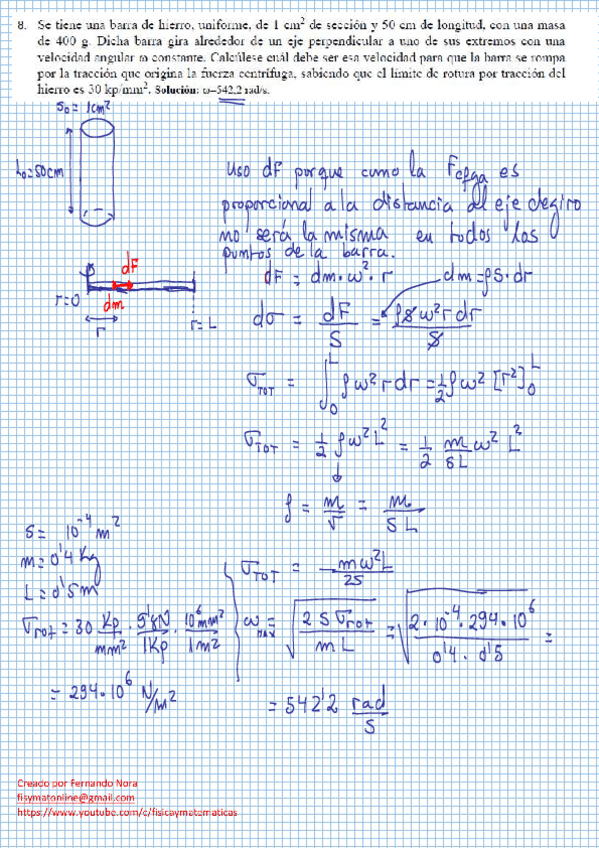 8. Se tiene una barra de hierro, uniforme, de 1 cm² de sección y 50 cm de longitud, con una masa
de 400 g. Dicha barra gira alrededor de un eje perpendicular a uno de sus extremos con una
velocidad angular ω constante. Calcúlese cuál debe ser esa velocidad para que la barra se rompa
por la tracción que origina la fuerza centrífuga, sabiendo que el límite de rotura por tracción del
hierro es 30 kp/mm². Solución: ω=542,2 rad/s.
S₀ = 1cm²
L₀=50cm
Uso dF porque como la Fcfga es
proporcional a la distancia al eje degiro
no será la misma en todos los
puntos de la barra.
dF
dm
r=0
r
r=L
dF = dm·ω²·r
dm=ρS·dr
dσ = dF/S = ρSω²rdr/S
σTOT = ∫₀ᴸ ρω²rdr = 1/2 ρω² [r²]₀ᴸ
σTOT = 1/2 ρω²L² = 1/2 m/SL ω² L²
ρ = m/V = m/SL
S= 10⁻⁴ m²
m=0'4 Kg
L=0'5m
σTOT = mω²L/2S
σrot = 30 Kp/mm² · 9'8N/1Kp · 10⁶mm²/1m²
= 294·10⁶ N/m²
ωMAX = √(2Sσrot/mL) = √(2·10⁻⁴·294·10⁶/0'4·0'5) =
= 542'2 rad/s
Creado por Fernando Nora
fisymatonline@gmail.com
https://www.youtube.com/c/fisicaymatematicas